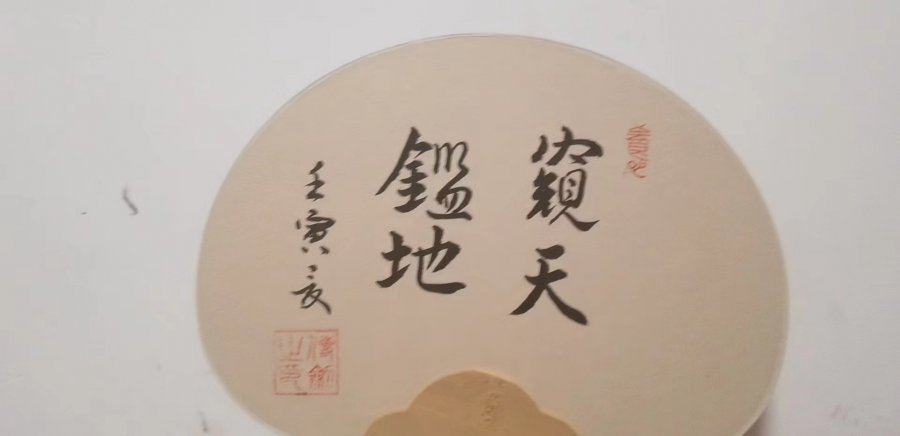 窺天
鑑地
壬寅夏